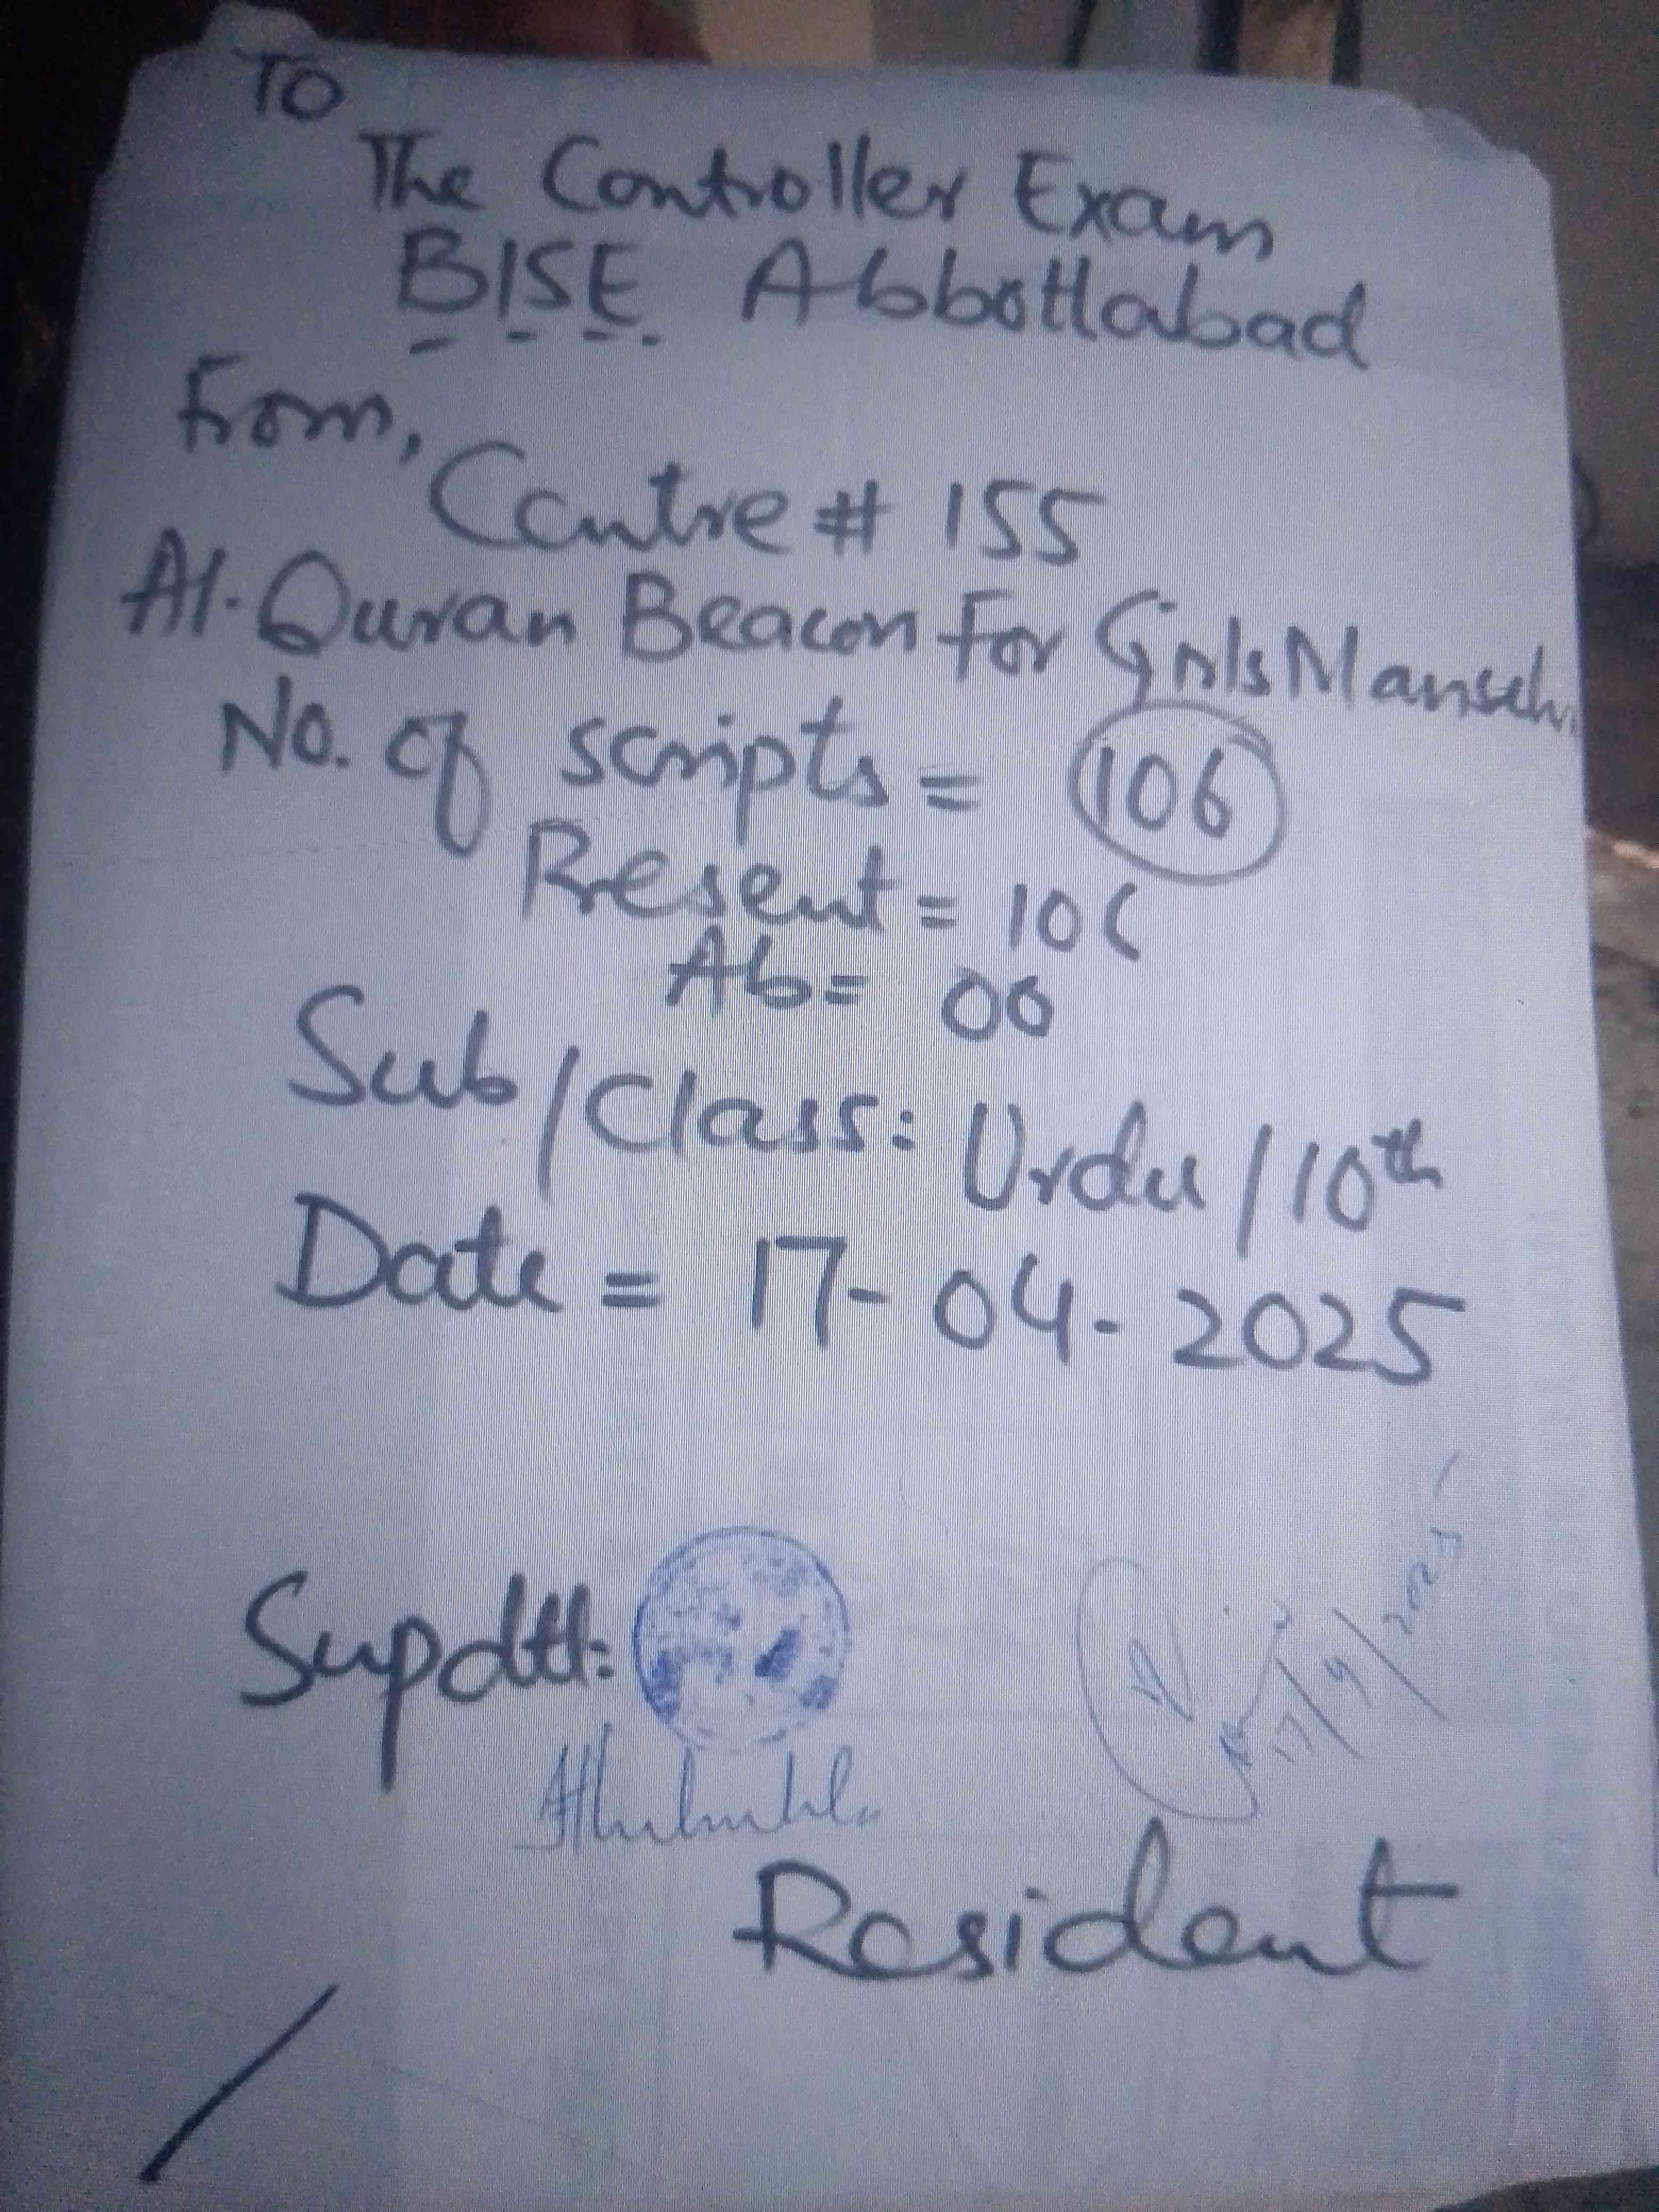 TO
The Controller Exam
BISE Abbottabad
From,
Centre # 155
Al-Quran Beacon For Girls Manseh
No. of scripts = 106
Present = 106
Ab = 00
Sub/Class: Urdu/10th
Date = 17-04-2025
Supdtt:
17/4/2025
Resident